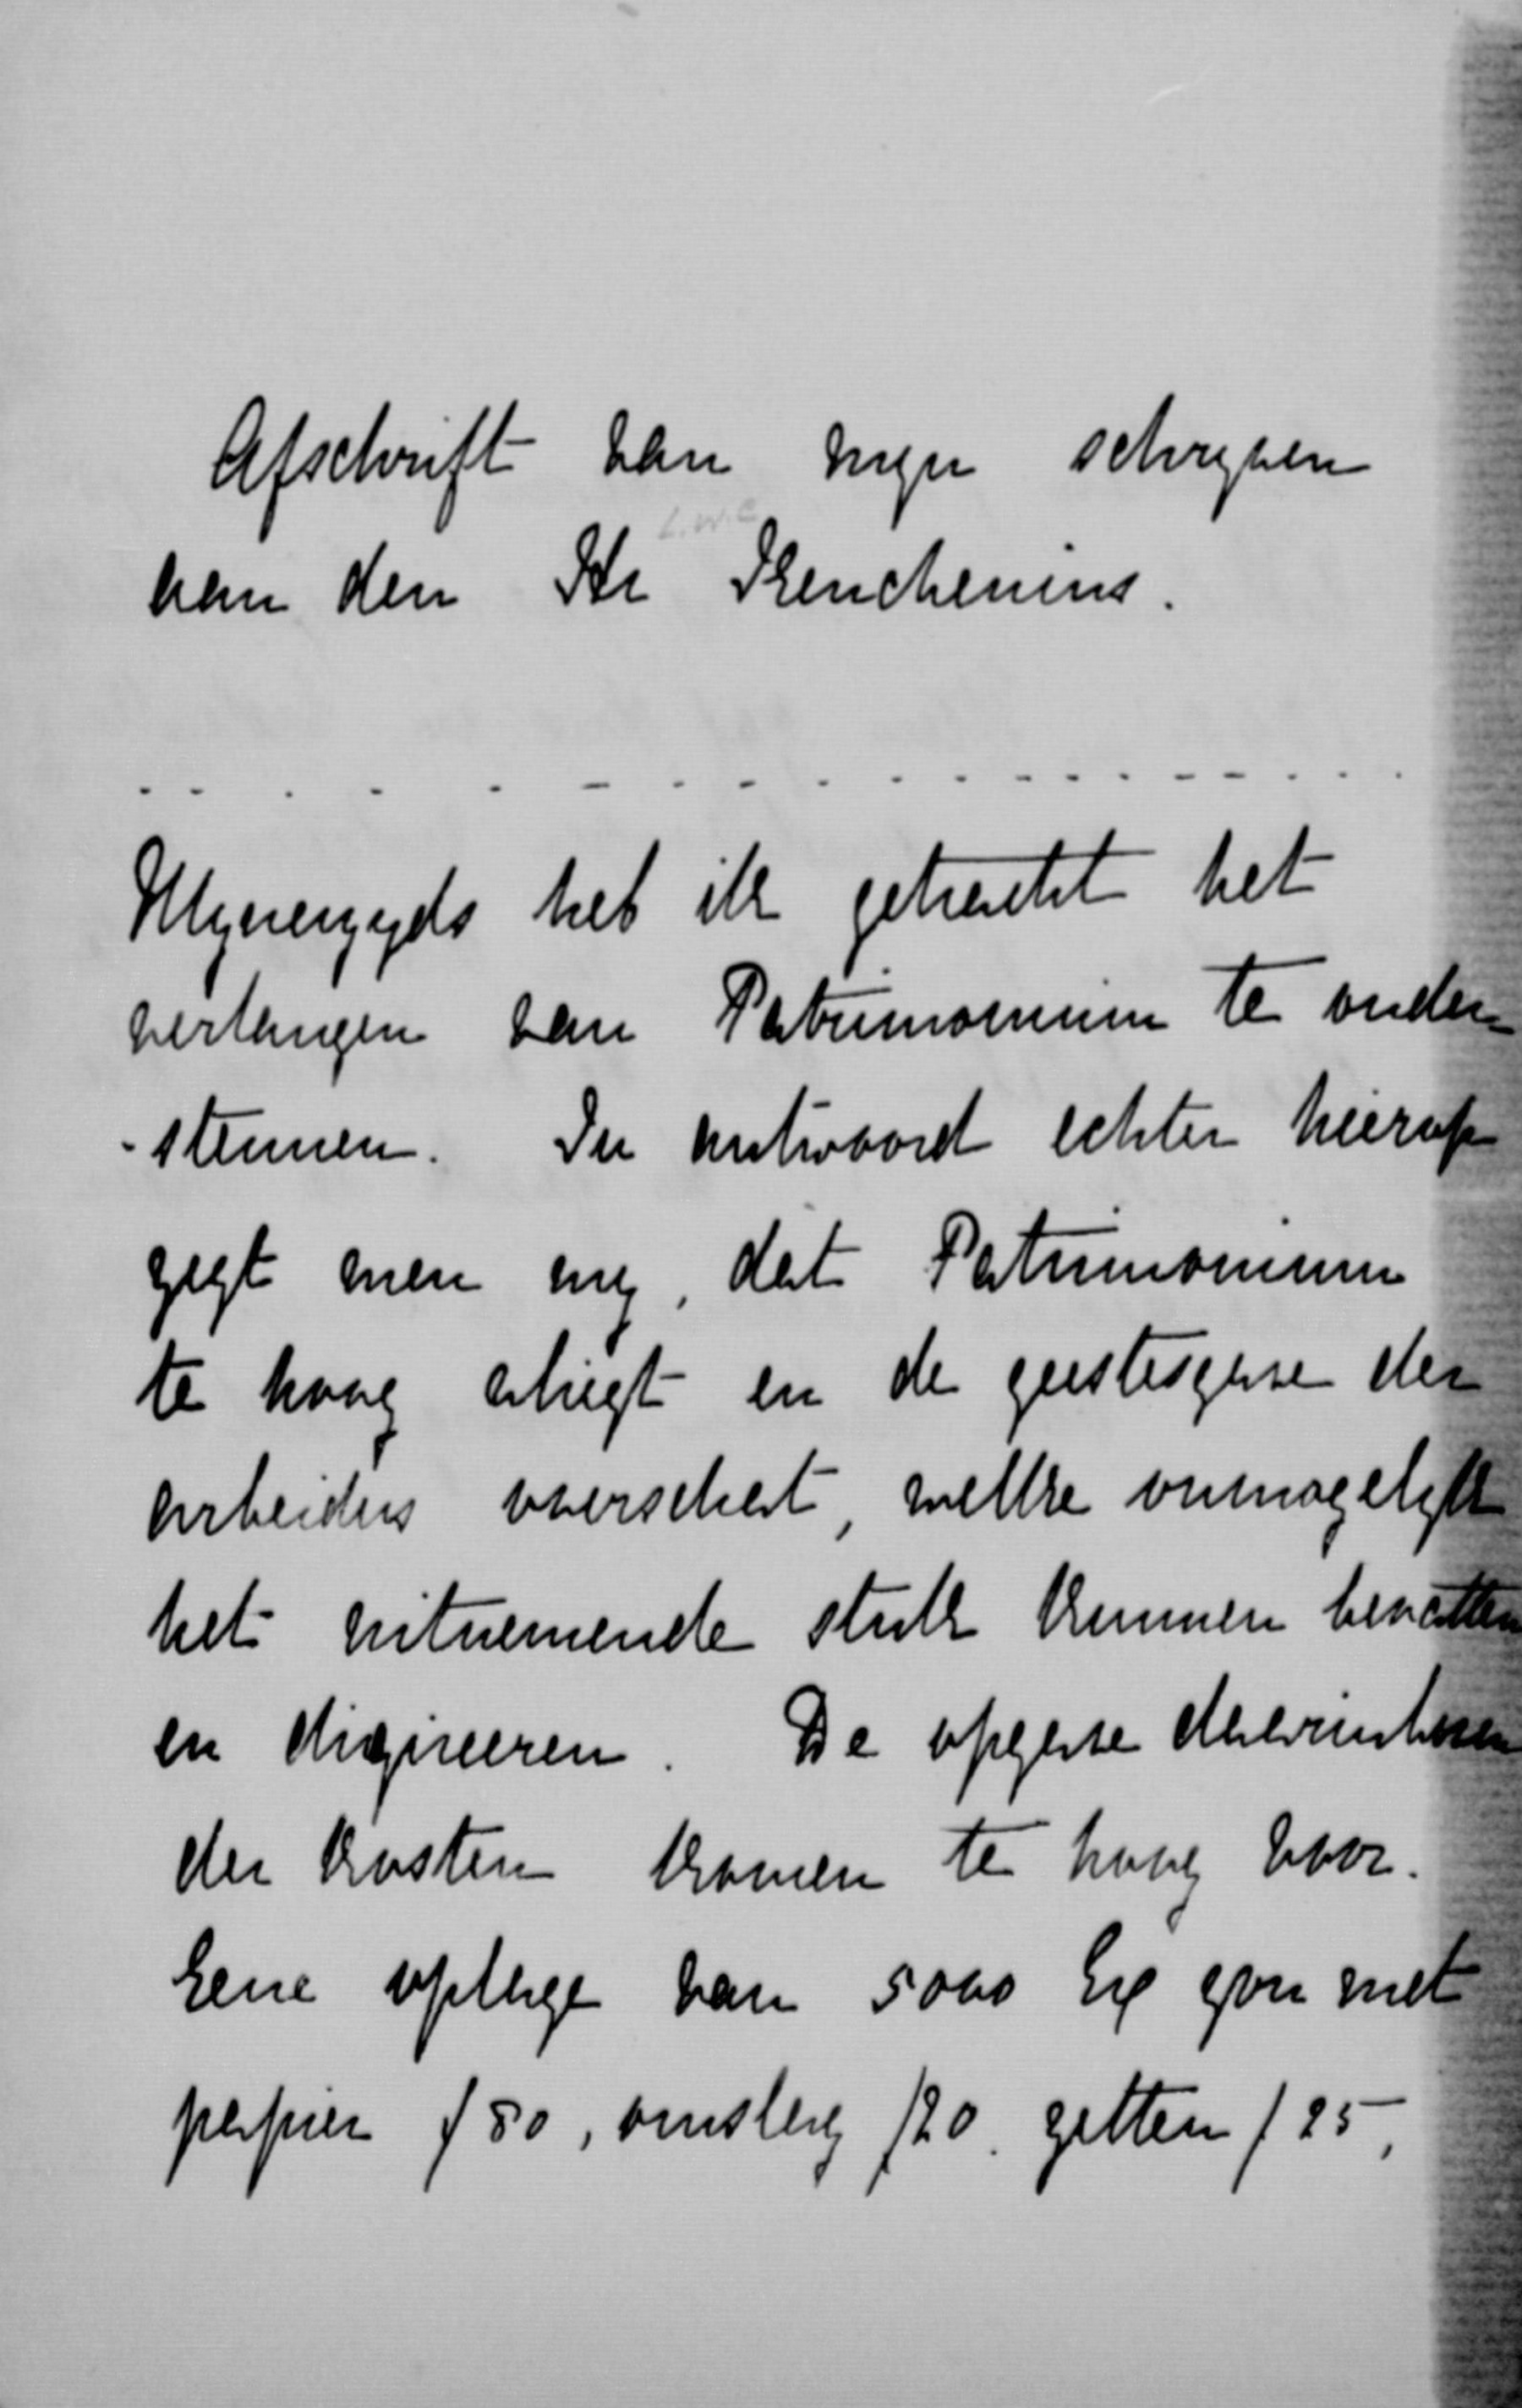 Afschrift van myn schryven
L.W.C
aan den Hr Keuchenius.
Mynerzyds heb ik getracht het
verlangen van Patrimonium te onder-
-steunen. In antwoord echter hierop
zegt men my, dat Patrimonium
te hoog vliegt en de geestesgave der
arbeiders overschat, welke onmogelyk
het uitnemende stuk kunnen bevatten
en digireeren. De opgave
der kosten komen te hoog voor.
Eene oplage van 5000 Ex zou met
papier f 80, omslag f 20. zetten f 25,